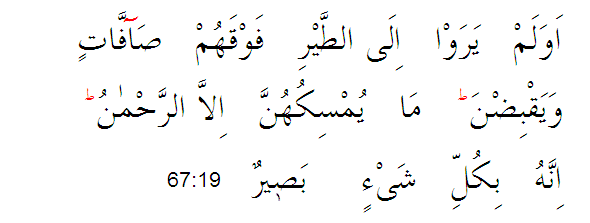 اَوَلَمْ يَرَوْا اِلَى الطَّيْرِ فَوْقَهُمْ صَٓافَّاتٍ
وَيَقْبِضْنَۜ مَا يُمْسِكُهُنَّ اِلاَّ الرَّحْمٰنُۜ
اِنَّهُ بِكُلِّ شَىْءٍ بَصٖيرٌ 67:19